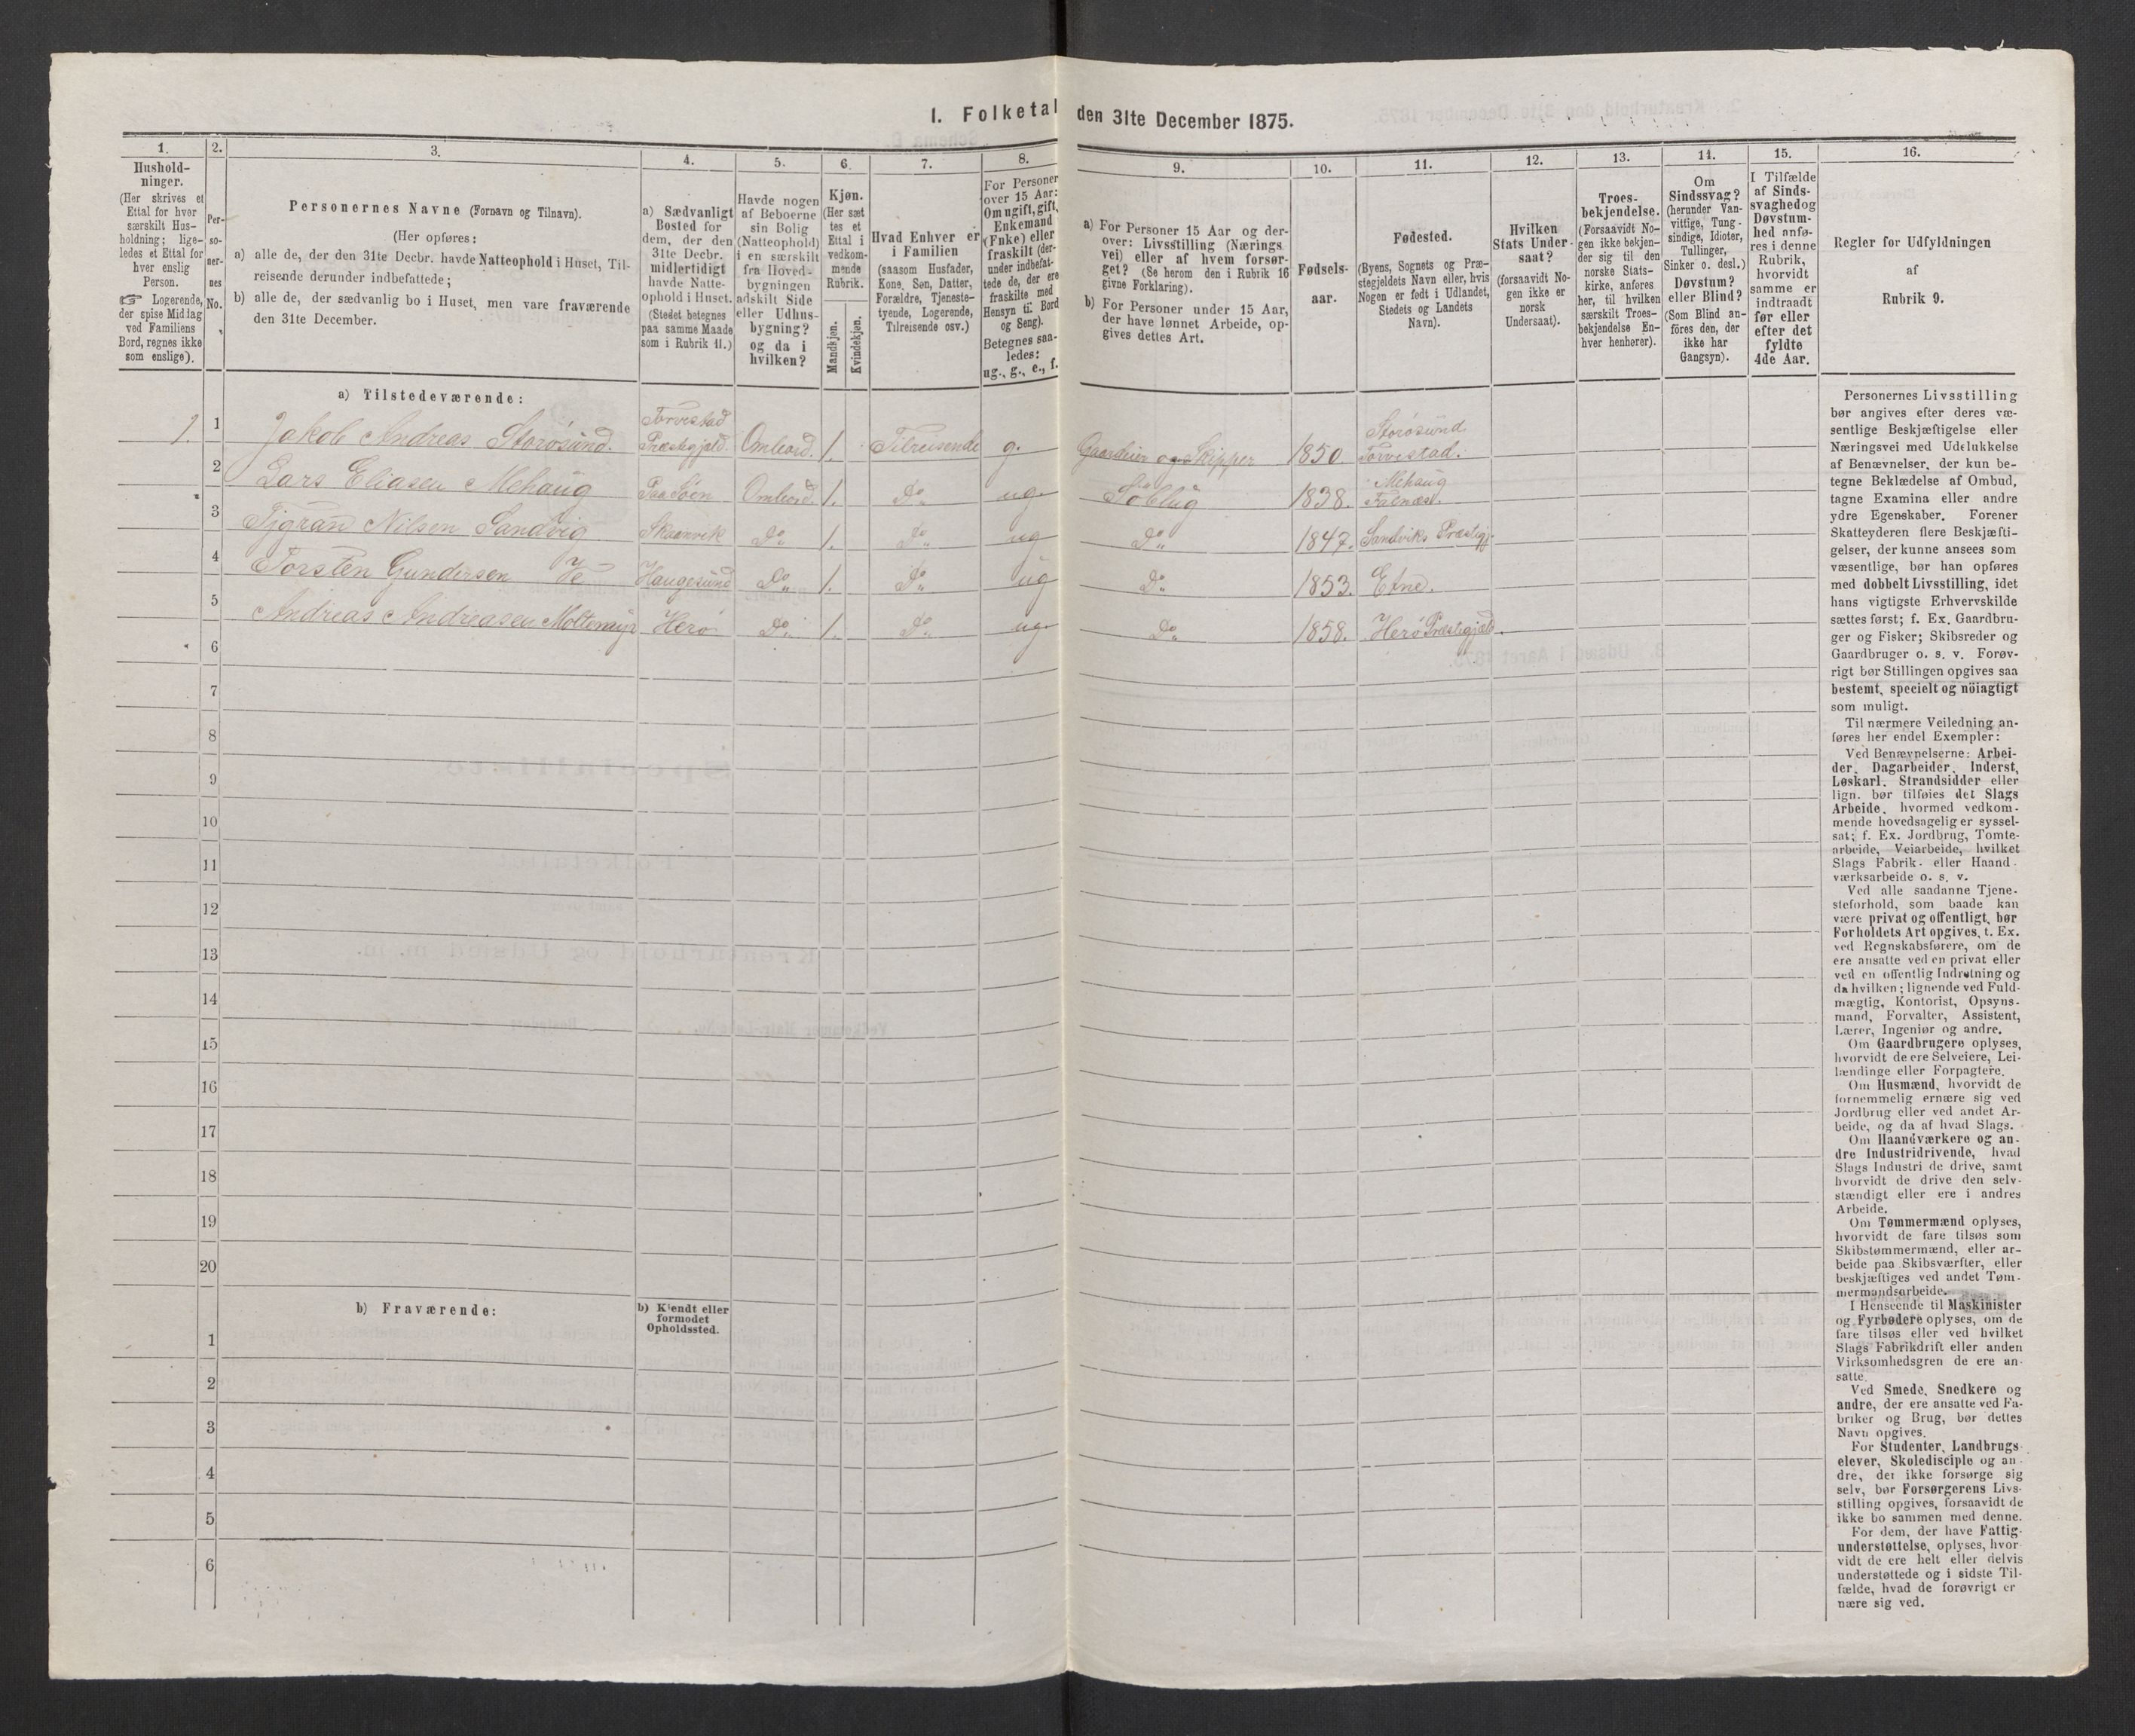 1. Folketal den 31te December 1875.
1.
Hushold-
ninger.
(Her skrives et
Ettal for hver
særskilt Hus-
holdning; lige-
ledes et Ettal for
hver enslig
Person.
☞ Logerende,
der spise Middag
ved Familiens
Bord, regnes ikke
som enslige).
2.
Per-
so-
ner-
nes
No.
3.
Personernes Navne (Fornavn og Tilnavn).
(Her opføres:
a) alle de, der den 31te Decbr. havde Natteophold i Huset, Til-
reisende derunder indbefattede;
b) alle de, der sædvanlig bo i Huset, men vare fraværende
den 31te December.
4.
a) Sædvanligt
Bosted for
dem, der den
31te Decbr.
midlertidigt
havde Natte-
ophold i Huset.
(Stedet betegnes
paa samme Maade
som i Rubrik 11.)
5.
Havde nogen
af Beboerne
sin Bolig
(Natteophold)
i en særskilt
fra Hoved-
bygningen
adskilt Side
eller Udhus-
bygning?
og da i
hvilken?
6.
Kjøn.
(Her sæt
tes et
Ettal i
vedkom-
mende
Rubrik.
Mandkjøn.
Kvindekjøn.
7.
Hvad Enhver er
i Familien
(saasom Husfader,
Kone, Søn, Datter,
Forældre, Tjeneste-
tyende, Logerende,
Tilreisende osv.)
8.
For Personer
over 15 Aar:
Om ugift, gift,
Enkemand
(Enke) eller
fraskilt (der-
under indbefat-
tede de, der ere
fraskilte med
Hensyn til Bord
og Seng).
Betegnes saa-
ledes:
ug., g., e., f.
9.
a) For Personer 15 Aar og der-
over: Livsstilling (Nærings
vei) eller af hvem forsør-
get? (Se herom den i Rubrik 16
givne Forklaring).
b) For Personer under 15 Aar,
der have lønnet Arbeide, op-
gives dettes Art.
10.
Fødsels-
aar.
11.
Fødested.
(Byens, Sognets og Præ-
stegjeldets Navn eller, hvis
Nogen er født i Udlandet,
Stedets og Landets
Navn).
12.
Hvilken
Stats Under-
saat?
(forsaavidt No-
gen ikke er
norsk
Undersaat).
13.
Troes-
bekjendelse.
(Forsaavidt No-
gen ikke bekjen-
der sig til den
norske Stats-
kirke, anføres
her, til hvilken
særskilt Troes-
bekjendelse En-
hver henhører).
14.
Om
Sindssvag?
(herunder Van-
vittige, Tung-
sindige, Idioter,
Tullinger,
Sinker o. desl.)
Døvstum?
eller Blind?
(Som Blind an-
føres den, der
ikke har
Gangsyn).
15.
I Tilfælde
af Sinds-
svaghed og
Døvstum-
hed anfø-
res i denne
Rubrik,
hvorvidt
samme er
indtraadt
før eller
efter det
fyldte
4de Aar.
16.
Regler for Udfyldningen
af
Rubrik 9.
a) Tilstedeværende:
1. 1 Jakob Andreas Storøsund. Torvestad Præstegjæld. Ombord. 1. Tilreisende g. Gaardeier og Skipper 1850. Storøsund. Torvestad.
2 Lars Eliasen Mehaug Paa Søen Ombord. 1. Do ug. Söelug 1838. Mehaug Falnæs.
3 Tjgran Nilsen Sandvig Skaanvik Do 1. Do ug Do 1847. Sandviks Præstegj.
4 Torsten Gundersen Ve Haugesund Do 1. Do ug Do 1853. Etne.
5 Andreas Andreasen Moltemyr Herö Do. 1. Do. ug. Do 1858. Herö Præstegjæld.
6
7
8
9
10
11
12
13
14
15
16
17
18
19
20
b) Fraværende:
b) Kjendt eller
formodet
Opholdssted.
1
2
3
4
5
6
Personernes Livsstilling
bør angives efter deres væ-
sentlige Beskjæftigelse eller
Næringsvei med Udelukkelse
af Benævnelser, der kun be-
tegne Beklædelse af Ombud,
tagne Examina eller andre
ydre Egenskaber. Forener
Skatteyderen flere Beskjæfti-
gelser, der kunne ansees som
væsentlige, bør han opføres
med dobbelt Livsstilling, idet
hans vigtigste Erhvervskilde
sættes først; f. Ex. Gaardbru-
ger og Fisker; Skibsreder og
Gaardbruger o. s. v. Forøv-
rigt bør Stillingen opgives saa
bestemt, specielt og nöiagtigt
som muligt.
Til nærmere Veiledning an-
føres her endel Exempler:
Ved Benævnelserne: Arbei-
der, Dagarbeider, Inderst,
Løskarl, Strandsidder eller
lign. bør tilføies det Slags
Arbeide, hvormed vedkom-
mende hovedsagelig er syssel-
sat; f. Ex. Jordbrug, Tomte-
arbeide, Veiarbeide, hvilket
Slags Fabrik- eller Haand-
værksarbeide o. s. v.
Ved alle saadanne Tjene-
steforhold, som baade kan
være privat og offentligt, bør
Forholdets Art opgives, t. Ex.
ved Regnskabsførere, om de
ere ansatte ved en privat eller
ved en offentlig Indretning og
da hvilken; lignende ved Fuld-
mægtig, Kontorist, Opsyns-
mand, Forvalter, Assistent,
Lærer, Ingeniør og andre.
Om Gaardbrugere oplyses,
hvorvidt de ere Selveiere, Lei-
lændinge eller Forpagtere.
Om Husmænd, hvorvidt de
fornemmelig ernære sig ved
Jordbrug eller ved andet Ar-
beide, og da af hvad Slags.
Om Haandværkere og an-
dre Industridrivende, hvad
Slags Industri de drive, samt
hvorvidt de drive den selv-
stændigt eller ere i andres
Arbeide.
Om Tømmermænd oplyses,
hvorvidt de fare tilsøs som
Skibstømmermænd, eller ar-
beide paa Skibsværfter, eller
beskjæftiges ved andet Tøm-
mermandsarbeide.
I Henseende til Maskinister
og Fyrbødere oplyses, om de
fare tilsøs eller ved hvilket
Slags Fabrikdrift eller anden
Virksomhedsgren de ere an-
satte.
Ved Smede, Snedkere og
andre, der ere ansatte ved Fa-
briker og Brug, bør dettes
Navn opgives.
For Studenter, Landbrugs-
elever, Skoledisciple og an-
dre, der ikke forsørge sig
selv, bør Forsørgerens Livs-
stilling opgives, forsaavidt de
ikke bo sammen med denne.
For dem, der have Fattig-
understøttelse, oplyses, hvor-
vidt de ere helt eller delvis
understøttede og i sidste Til-
fælde, hvad de forøvrigt er
nære sig ved.